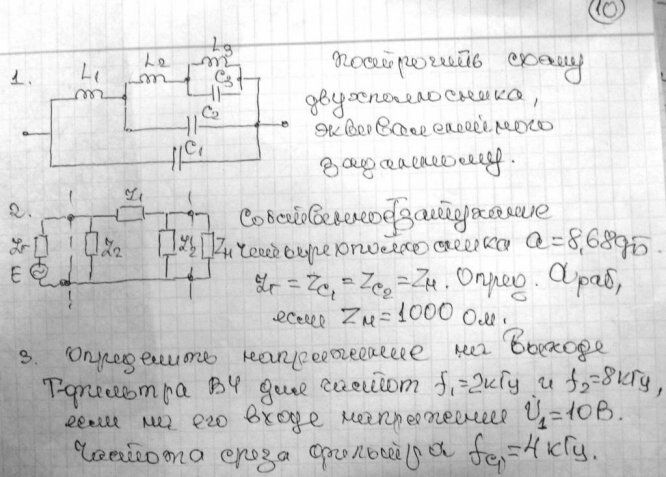 10
1.
L1
L2
L3
C3
C2
C1
построить схему
двухполюсника,
эквивалентного
заданному.
2.
Zг
E
Z2
Z1
Z2
Zн
Собственное затухание
четырехполюсника a=8,68дб.
Zг = Zc1 = Zc2 = Zн. Опред. aраб,
если Zн = 1000 Ом.
3. Определить напряжение на выходе
Т-фильтра ВЧ для частот f1=2кГц и f2=8кГц,
если на его входе напряжение U̇1=10В.
Частота среза фильтра fc1=4кГц.